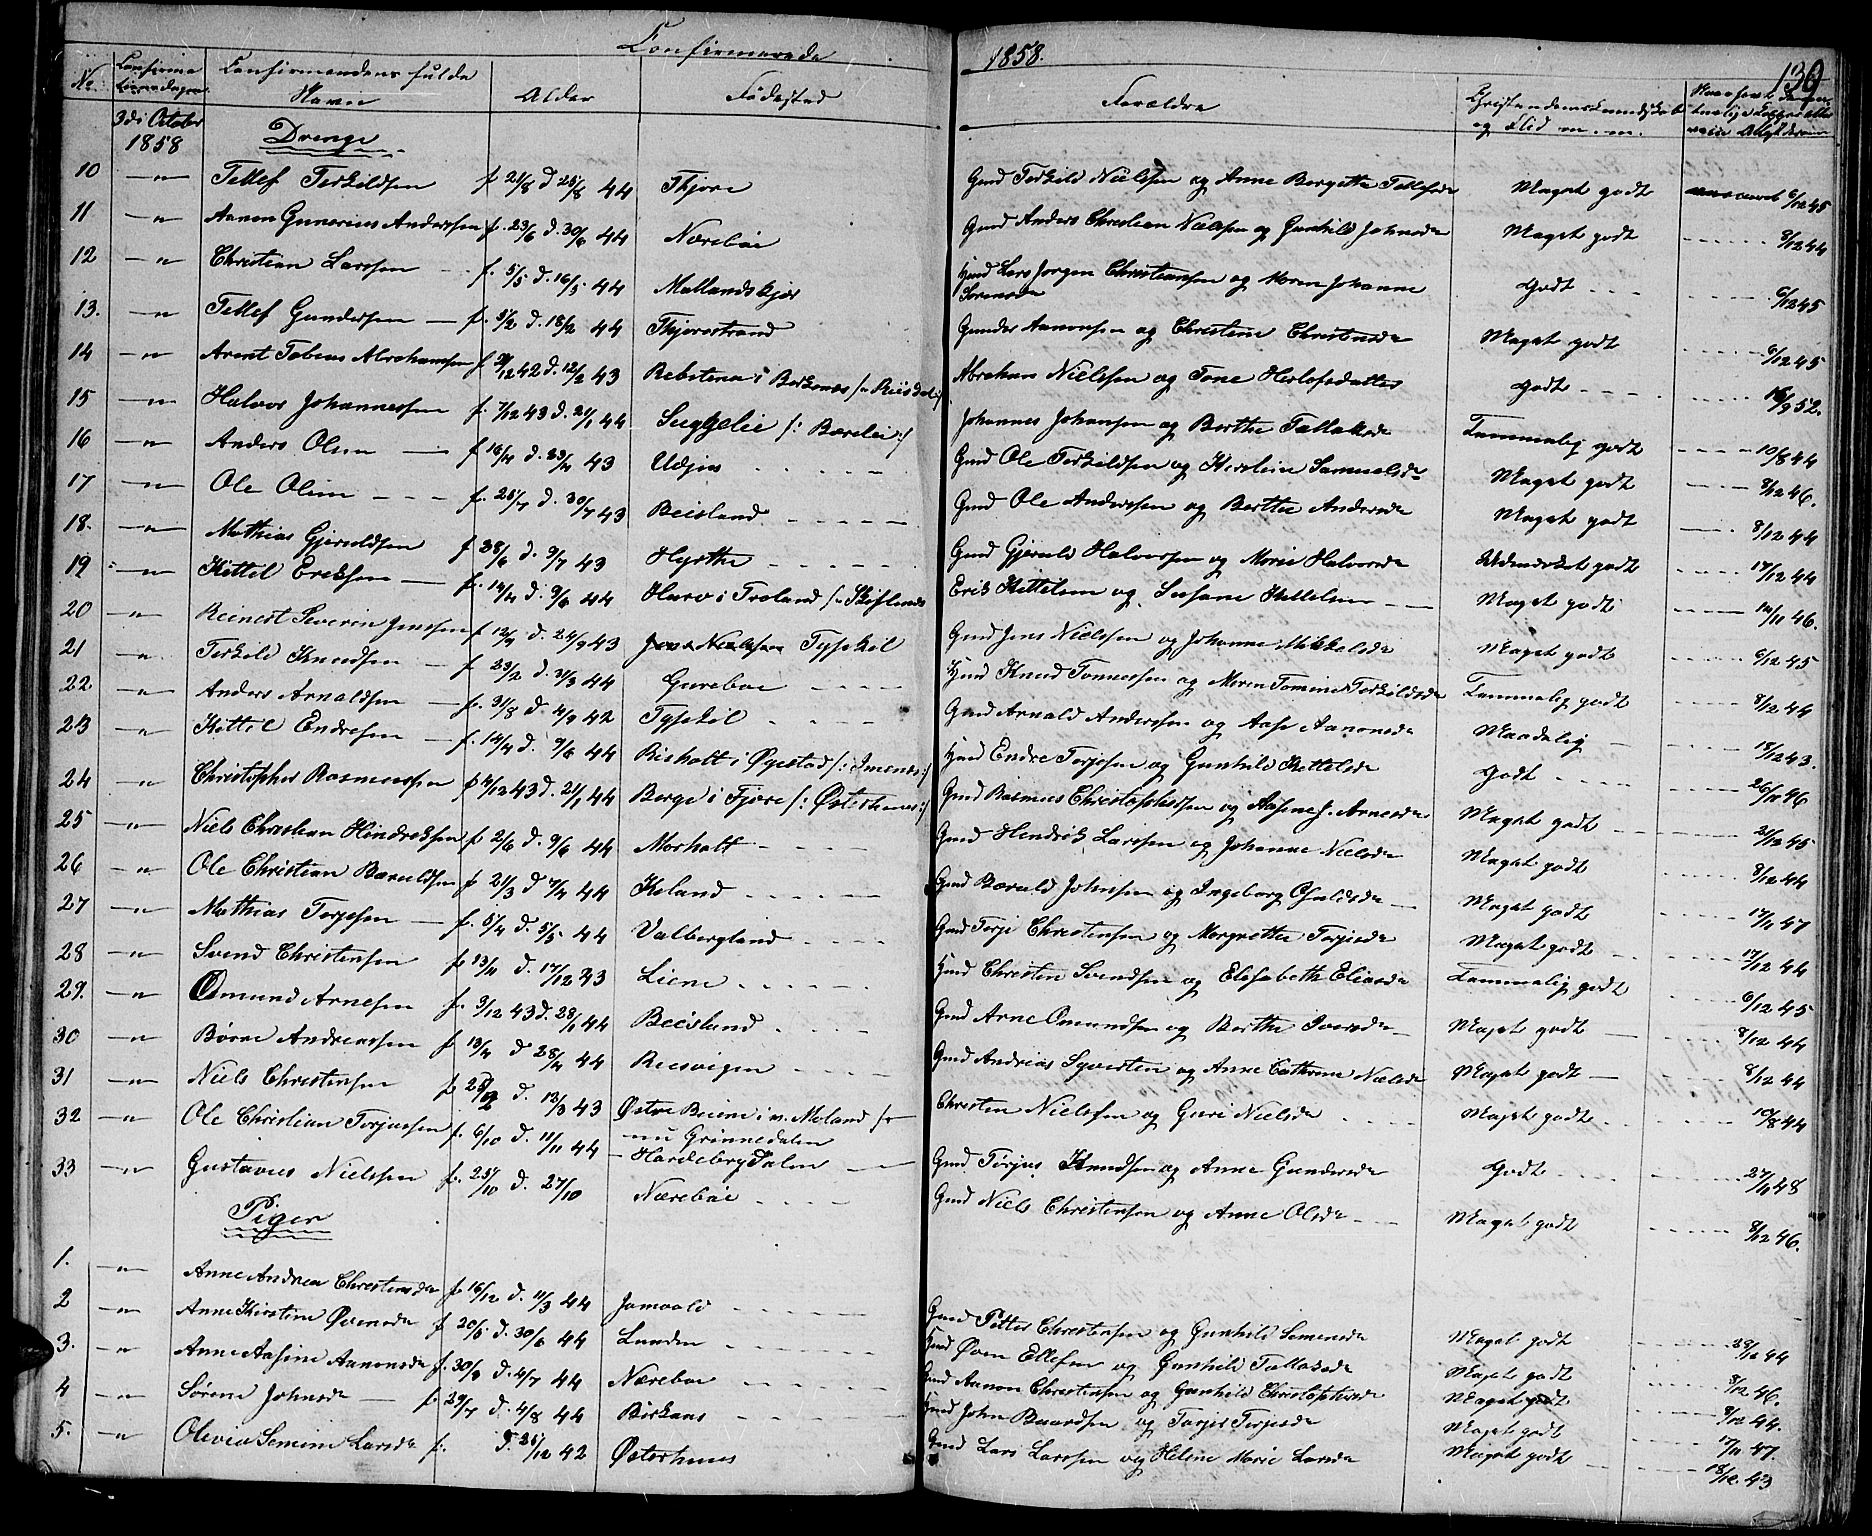 Confirmerede 1858. 139
No Confirmationsdagen Confirmandens fulde Navn Alder Fødested Forældre Christendomskundskab og Flid m. m.
3die October 1858 Drenge
10 —"— Tellef Terkildsen f 21/8 d 25/8 44 Fjære Gmd Terkild Nielsen og Anne Bergette Tellefsdr Meget godt 6/12 45
11 —"— Aanon Gunerius Anderssen f. 23/6 d. 30/6 44 Nærebøe Gmd Anders Christian Nielsen og Gunhild Johnsdr Meget godt 8/12 44
12 —"— Christian Larssen f. 5/5 d. 16/5 44 Mallandskjær Hmd Lars Jørgen Christiansen og Maren Johanne Sørensdr Godt 6/12 45
13. —"— Tellef Gundersen f. 5/2 d. 18/2 44 Fjærestrand Gunder Aanonsen og Christine Christensdr Meget godt 6/12 45
14 —"— Arent Tobias Abrahamsen 12 42 d. 12/2 43 Abraham Nielsen og Tone Herlofsdatter Godt 52.
15 —"— Halvor Johannessen f. 7/12 43 d. 21/1 44 Suggelie /: Bærelie :/ Johannes Johansen og Berthe Tallaksdr Temmelig godt 10/8 44
16 —"— Anders Olsen f 16/4 d. 23/4 43 Udjus Gmd Ole Terkildsen og Kirstine Samuelsdr Meget godt 8/12 46.
17 —"— Ole Olsen f. 25/7 d. 30/7 43 Beisland Gmd Ole Anderssen og Berthe Andersdr Meget godt 8/12 44
18. —"— Mathias Gjeruldsen f 28/6 d. 9/7 43 Hyrthe Gmd Gjeruld Halvorsen og Marie Halvorsdr Udmærket godt 17/12 44
19 —"— Kittel Eriksen f. 14/4 d. 9/6 44 Erik Kittelsen og Susane Kittelsdr Meget godt 14/11 46.
20 —"— Reinert Severin Jenssen f 12/9 d. 24/9 43 Jens Nielssen Typekil Gmd Jens Nielsen og Johanne Mikkelsdr Meget godt 6/12 45
21 —"— Terkild Knudsen f 23/2 d. 31/3 44 Gurebøe Hmd Knud Tønnessen og Maren Tomine Terkildsdr Temmelig godt 8/12 44
22 —"— Anders Arnoldsen f. 31/8 d. 4/9 42 Typekil Gmd Arnold Anderssen og Aase Aanonsdr Maadelig 18/12 43.
23 —"— Kittel Endresen f. 14/4 d. 9/6 44 Bisholt i Øyestad /: Imenes :/ Hmd Endre Torjesen og Gunhild Kittelsdr Godt 26/11 46
24 —"— Christopher Rasmussen f 4/12 43 d. 21/1 44 Berge i Fjære /: Østerhuus :/ Gmd Rasmus Christophersen og Aasine J. Arnesdr Meget godt 21/12 45
25 —"— Niels Christian Hendriksen f 2/6 d. 9/6 44 Morholt Gmd Hendrik Larssen og Johanne Nielsdr Meget godt 8/12 44
26 —"— Ole Christian Baruldsen f 21/3 d 7/4 44 Keland Gmd Baruld Johnsen og Ingeborg Osuldsdr Meget godt 17/11 47
27 —"— Mathias Torjesen f. 5/4 d. 5/5 44 Valbergland Gmd Torje Christensen og Margrethe Torjesdr Meget godt 17/12 44
28 —"— Svend Christensen f 13/11 d. 17/12 43 Liene Hmd Christen Svendsen og Elisabeth Eliasdr Temmelig godt 6/12 45
29. —"— Omund Arnesen f. 9/12 43 d. 28/1 44 Beisland Gmd Arne Omundsen og Berthe Iversdr Meget godt 8/12 44
30 —"— Børre Andreassen f 13/4 d 28/4 44 Reesvigen Gmd Andreas Syversten og Anne Cathrine Nielsdr Meget godt 8/12 44
31 —"— Niels Christensen f 25/12 d. 12/3 43 Østre Beiene i v. Moland /: nu Grinnedalen Christen Nielsen og Guri Nielsdr Meget godt 10/8 44
32 —"— Ole Christian Torjussen f. 6/10 d. 11/11 44 Hardebergdalen Gmd Torjus Knudsen og Anne Gundersdr Godt 27/11 48
33 —"— Gustavus Nielsen f. 25/10 d. 27/10 Nærebøe Gmd Niels Christensen og Anne Olsdr Meget godt 8/12 46.
Piger
1. —"— Anne Andrea Christensdr f 16/12 d. 11/3 44 Jomaals Gmd Petter Christensen og Gunhild Simonsdr Meget godt 28/12 44
2 —"— Anne Kirstine Øvensdr f 20/5 d. 30/6 44 Lunden Hmd Øven Ellefsen og Gunhild Tallaksdr Meget godt 8/12 46.
3. —"— Anne Aasine Aanonsdr f. 30/3 d. 4/7 44 Nærebøe Gmd Aanon Christensen og Gunhild Christophersdr Meget godt 8/12 44.
4 —"— Sørene Johnsdr f. 29/7 d. 4/8 44 Birkenes Hmd John Baardsen og Torjer Torjesdr Meget godt 17/11 47.
5. —"— Olevia Semine Larsdr f. d. 26/12 42 Østerhuus Gmd Lars Larssen og Helene Marie Larsdr Meget godt 18/12. 43